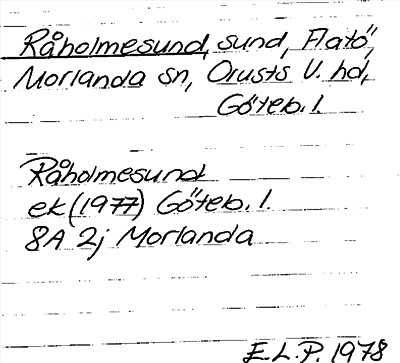 Råholmesund, sund, Flatö,
Morlanda sn, Orusts V. hd,
Göteb. l.
Råholmesund
ek (1977) Göteb. l.
8A 2j Morlanda
E.L.P. 1978